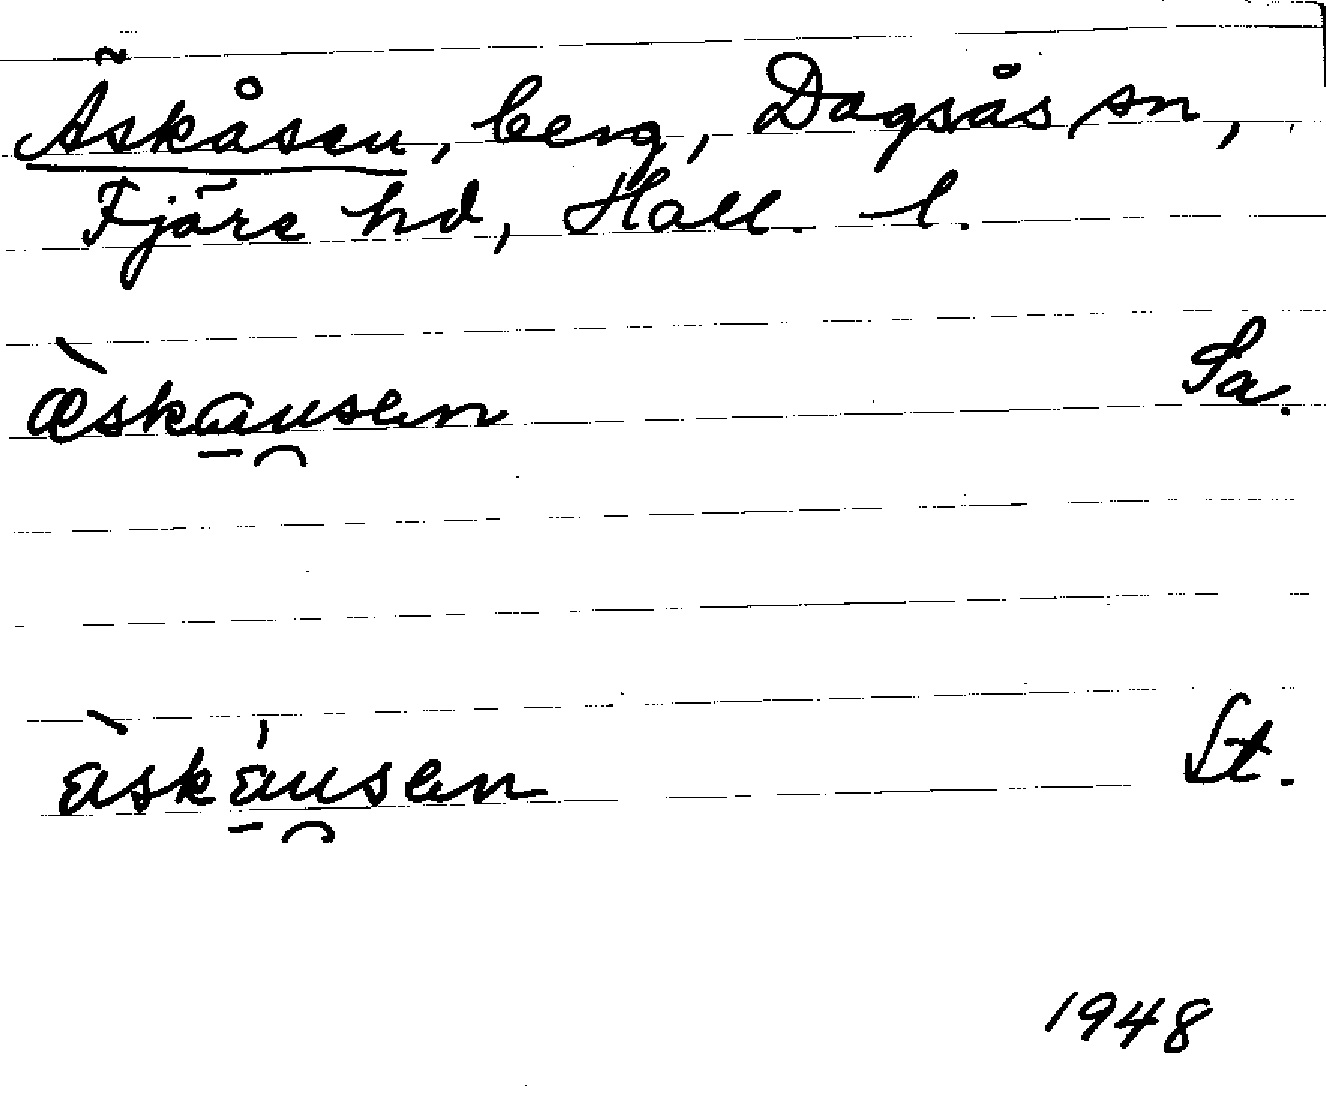 Äskåsen, berg, Dagsås sn,
Fjäre hd, Hall. l.
æ̀skau̯sen Sa.
ä̀skáu̯sen St.
1948